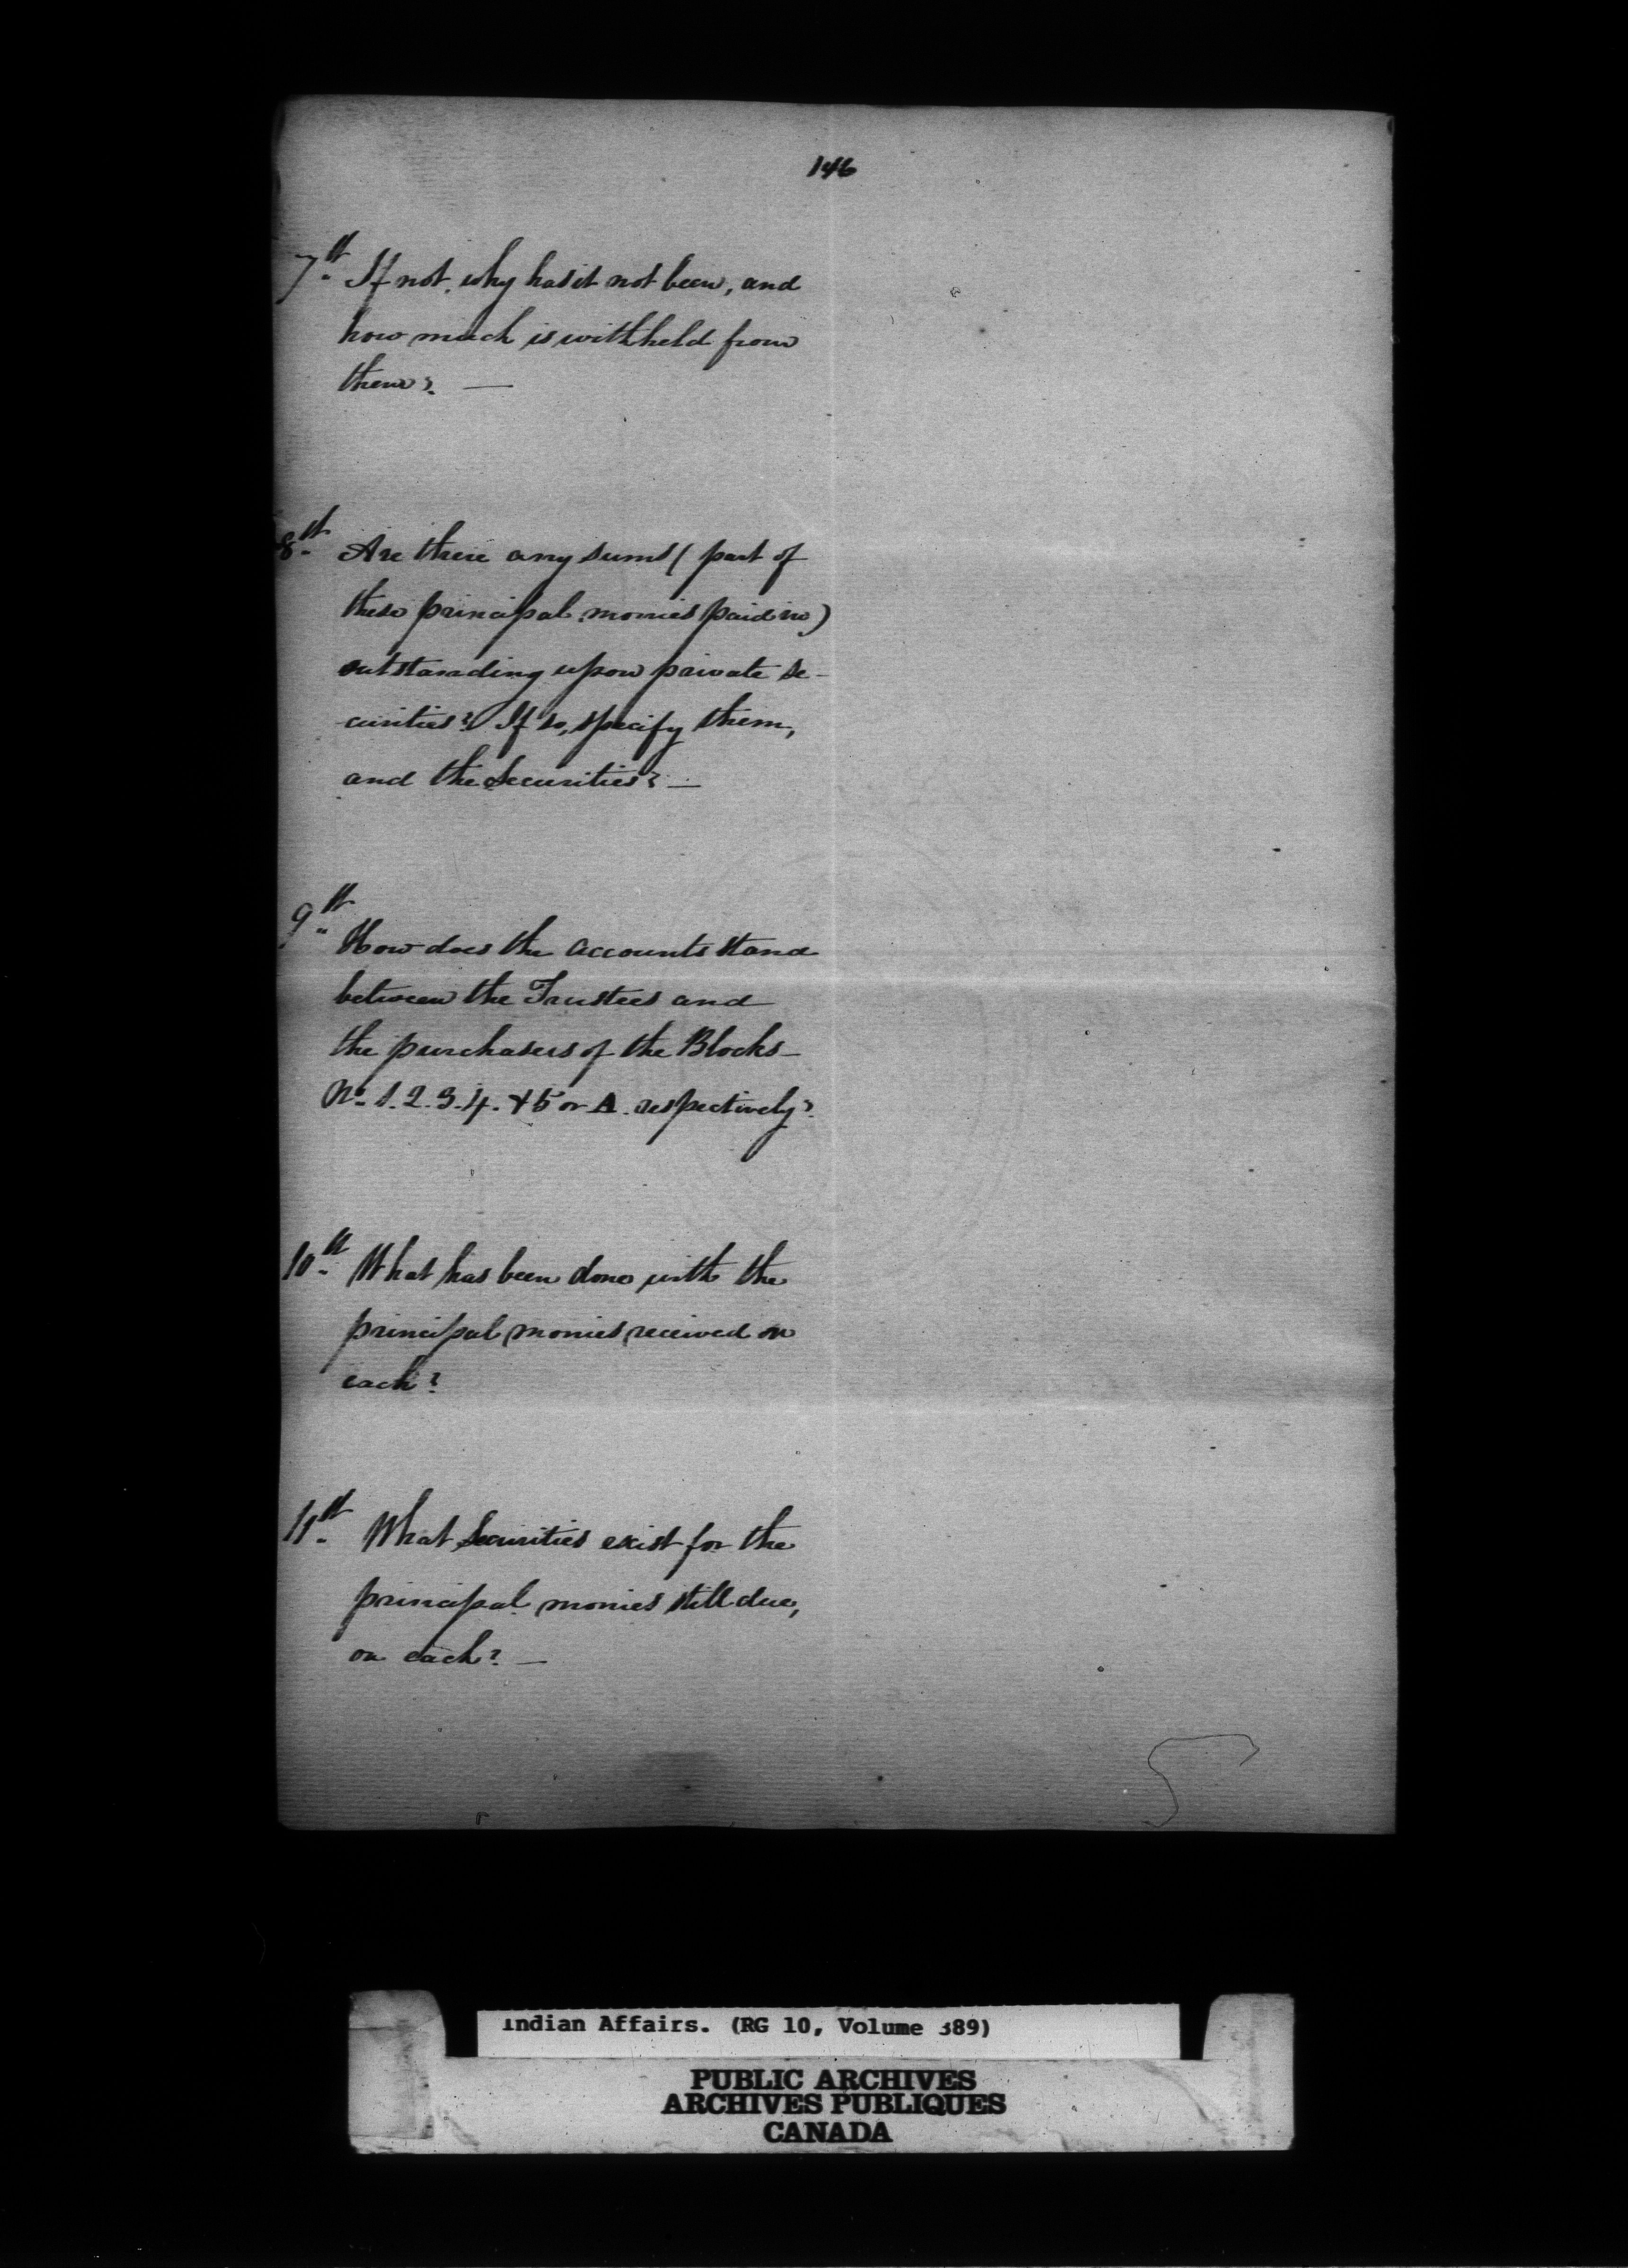 146
7th. If not, why has it not been, and
how much is withheld from
them? —
8th. Are there any sums (part of
these principal monies paid in)
outstanding upon private se-
curities? If so, specify them,
and the Securities? —
9th.
How does the accounts stand
between the Trustees and
the purchasers of the Blocks
No. 1. 2. 3. 4. & 5 or A. respectively?
10th. What has been done with the
principal monies received on
each?
11th. What Securities exist for the
principal monies still due,
on each? —
Indian Affairs. (RG 10, Volume 389)
PUBLIC ARCHIVES
ARCHIVES PUBLIQUES
CANADA